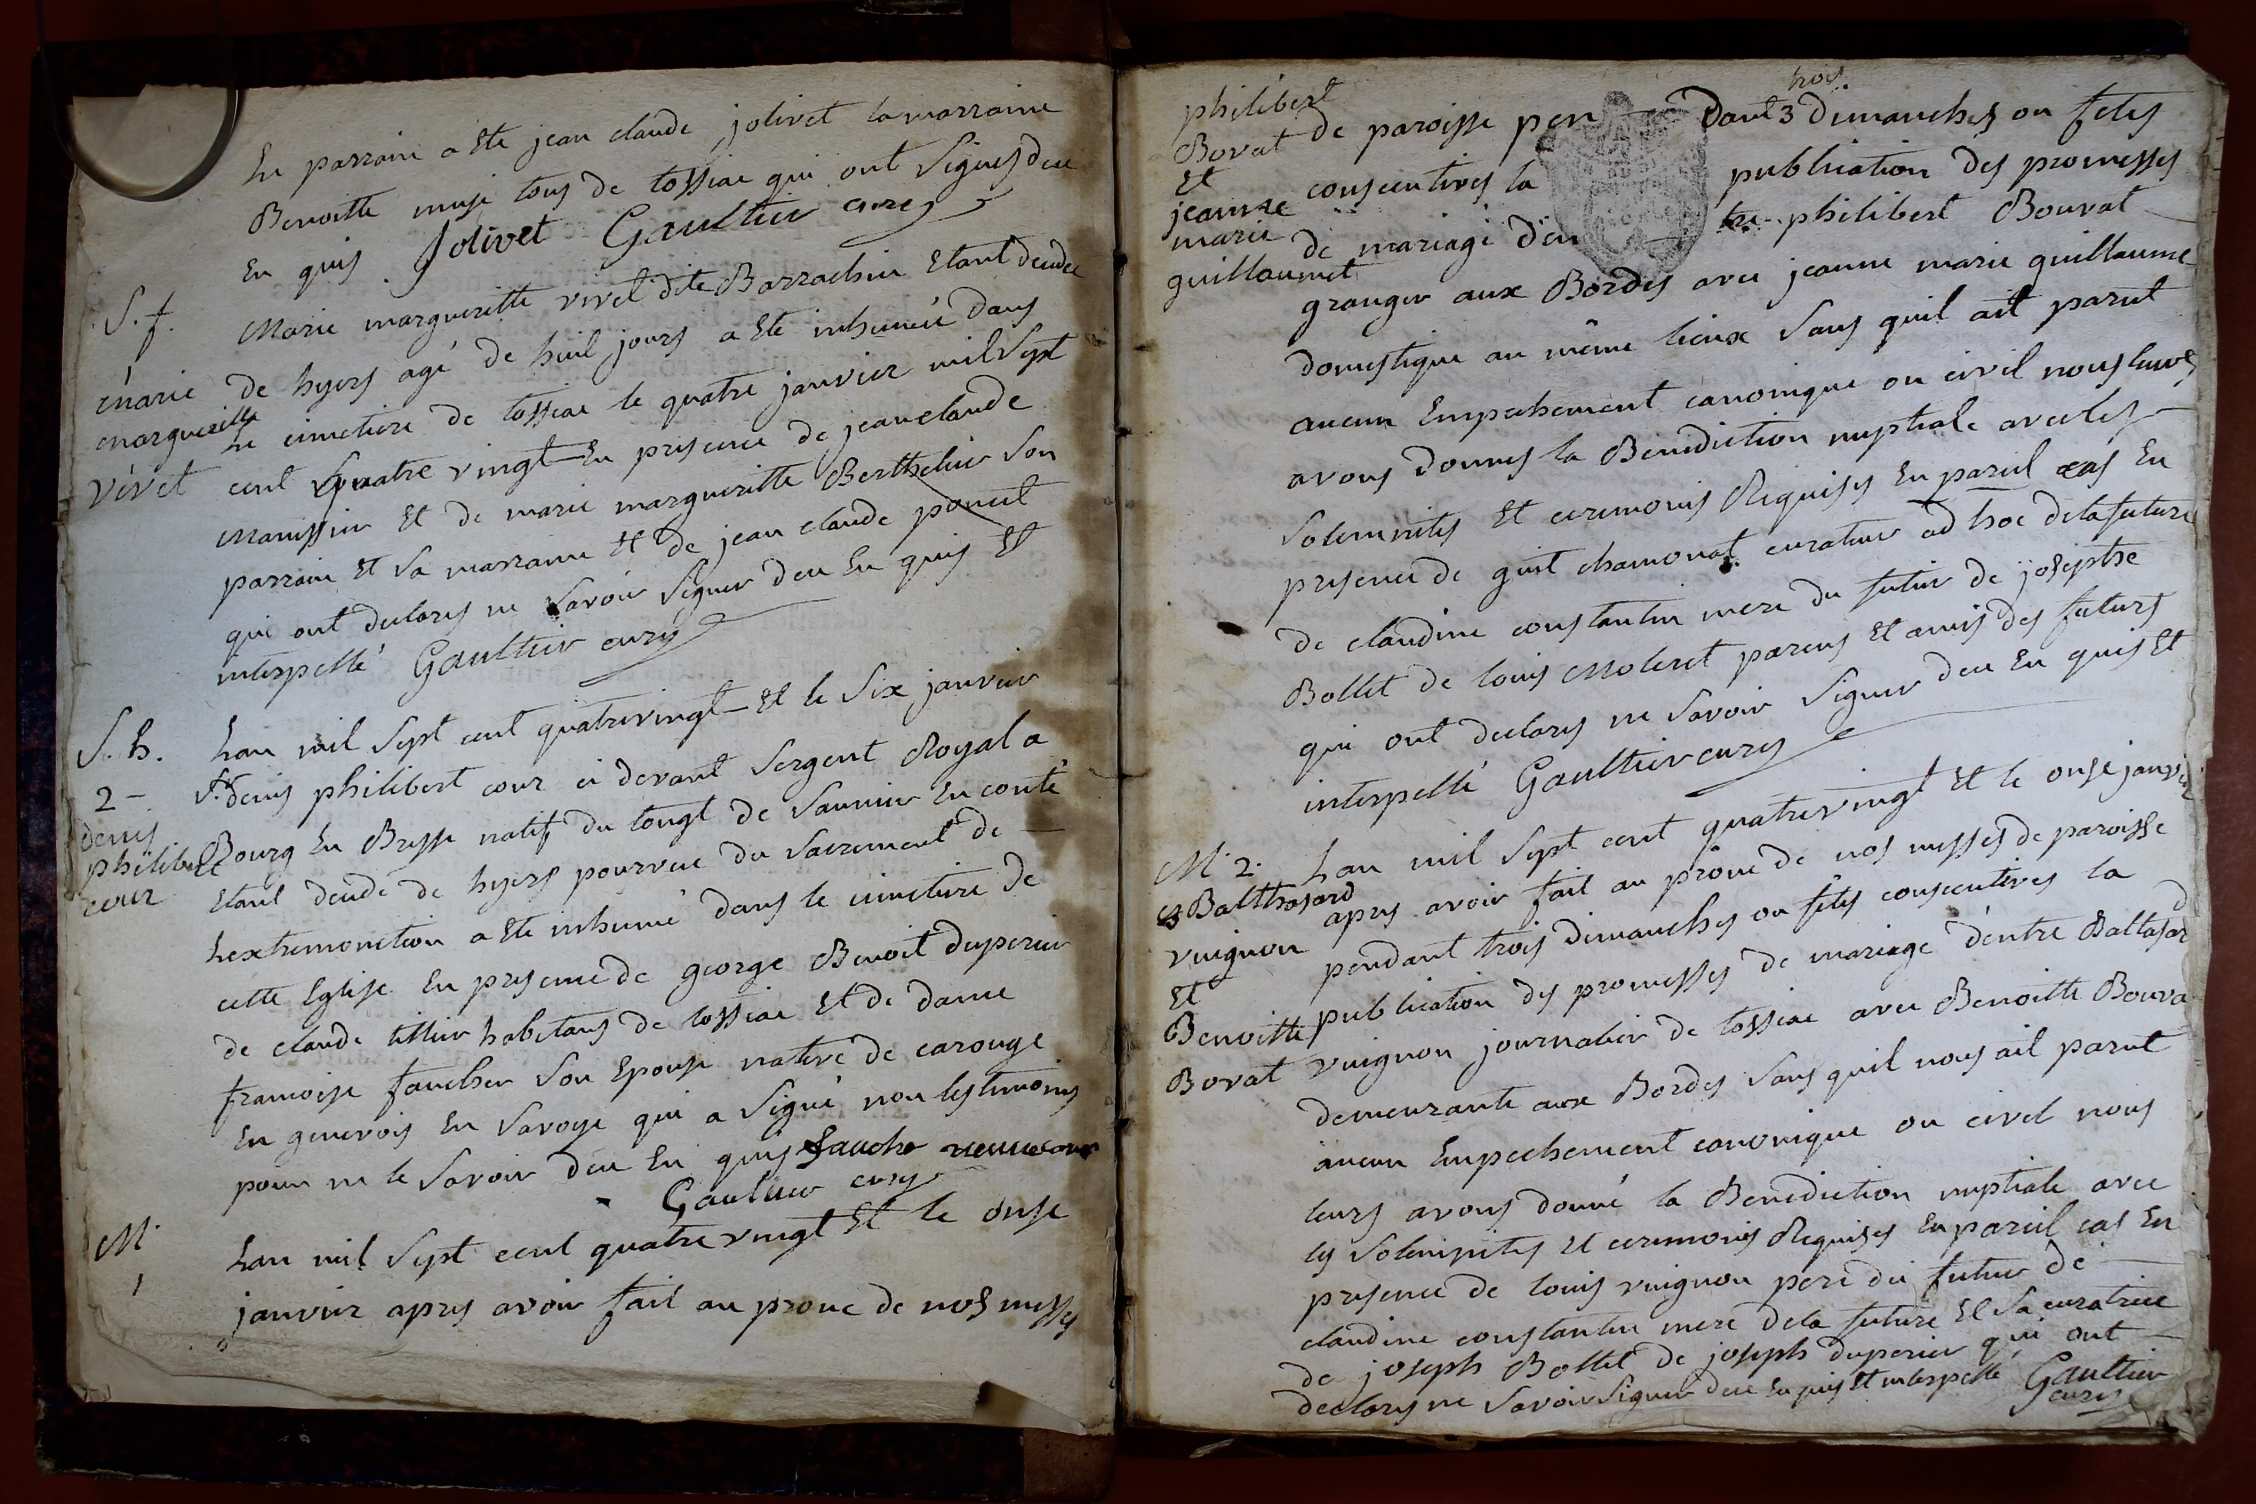 Le parrain a ete jean claude jolivet la marraine
Benoitte muje tous de tossiac qui ont signes deu
En quis Jolivet Gaultier cure
S. f.
1
marie
marguerilte
vévet
Marie margueritte vivel dite Barrachin Etant dendee
de hyers agé de huil jours a ete inhumeé dans
Le cimetiere de tossiae le quatre janvier mil Sept
cent quatre vingt En presence de jean claude
manissier Et de marie margueritte Berthelier Son
parrain Et Sa marraine Et de jean claude poncet
qui ont declares ne Savoir Signer deu En quis Et
interpellé Gaultier cure
S. h.
2 -
denis
philibert
cour
Lan mil Sept cent quatrevingt Et le Six janvier
Sr denis philibert cour ci devant Sergent Royal a
Bourg En Bresse natif du longt de Saunier En conté
Etant dendé de hyers pourveu du Sacrement de
Lextremonction a ete inhumé dans le cimetiere de
cette Eglise En presence de george Benoit duperier
de claude tillier habitans de tossiae Et de dame
francoise faucher Son Epouse native de carouge
En genevois En Savoye qui a Signé non les temoins
pour ne le Savoir deu En quis Faucher veuve cour
Gaultier cure
M.
1
Lan mil Sept cent quatre vingt Et le onse
janvier apres avoir fait au prone de nos messes
philibert
Bovat
Et
jeanne
marie
guillaumet
trois
de paroisse pendant 3 dimanches ou fetes
consecutives la publication des promesses
de mariage d'entre philibert Bouvat
granger aux Bordes avec jeanne marie guillaume
domestique au même lieux Sans quil ait parut
aucun Empechement canonique ou civil nous leurs
avons donnes la Benediction nuptiale avec les
Solemnites Et ceremonies Requises En pareil cas En
presence de guit chamonat curateur ad hoc de la future
de claudine constantin mere du futur de josepthe
Bollet de louis Moleret parens Et amis des futurs
qui ont declares ne Savoir Signer deu En quis Et
interpellé Gaultier cure
M. 2.
Balthasard
vuignon
Et
Benoitte
Bovat
Lan mil Sept cent quatrevingt Et le onse janvier
apres avoir fait au prône de nos messes de paroisse
pendant trois dimanches ou fêtes consecutives la
publication des promesses de mariage d'entre Baltasard
vuignon journalier de tossiae avec Benoitte Bouva
demeurante aux Bordes Sans quil nous ait parut
aucun Empechement canonique ou civel nous
leurs avons donné la Benediction nuptiale avec
les Solemnites Et ceremonies Requises En pareil cas En
presence de louis vuignon pere du futur de
claudine constantin mere de la future Et Sa curatrice
de joseph Bollet de joseph duperier qui ont
declares ne Savoir Signer deu En quis Et interpellé Gaultier
cure